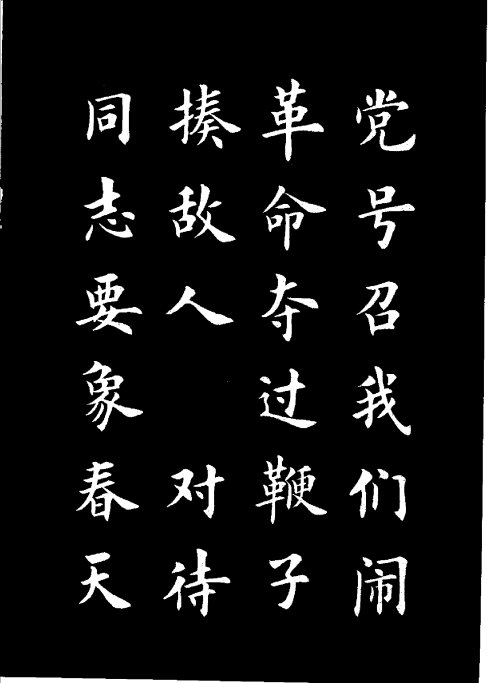 党号召我们闹
革命夺过鞭子
揍敌人　对待
同志要象春天